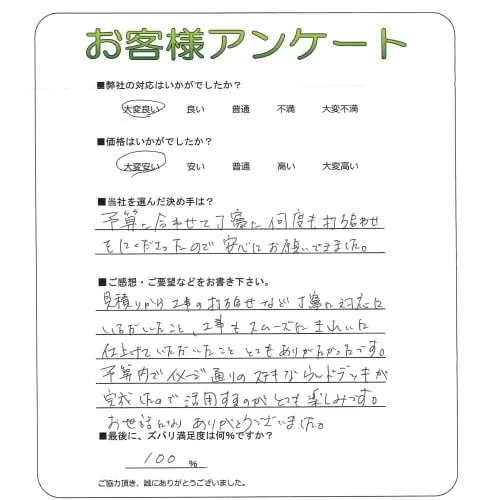 お客様アンケート
■弊社の対応はいかがでしたか?
大変良い 良い 普通 不満 大変不満
■価格はいかがでしたか?
大変安い 安い 普通 高い 大変高い
■当社を選んだ決め手は?
予算に合わせて丁寧に何度も打ち合わせ
をしてくださったので安心してお願いできました。
■ご感想・ご要望などをお書き下さい。
見積りから工事の打ち合せなど丁寧に対応して
いただいたこと、工事もスムーズにきれいに
仕上げていただいたこと とてもありがたかったです。
予算内でイメージ通りのステキなウッドデッキが
完成したので活用するのがとても楽しみです。
お世話になり ありがとうございました。
■最後に、ズバリ満足度は何%ですか?
100 %
ご協力頂き、誠にありがとうございました。